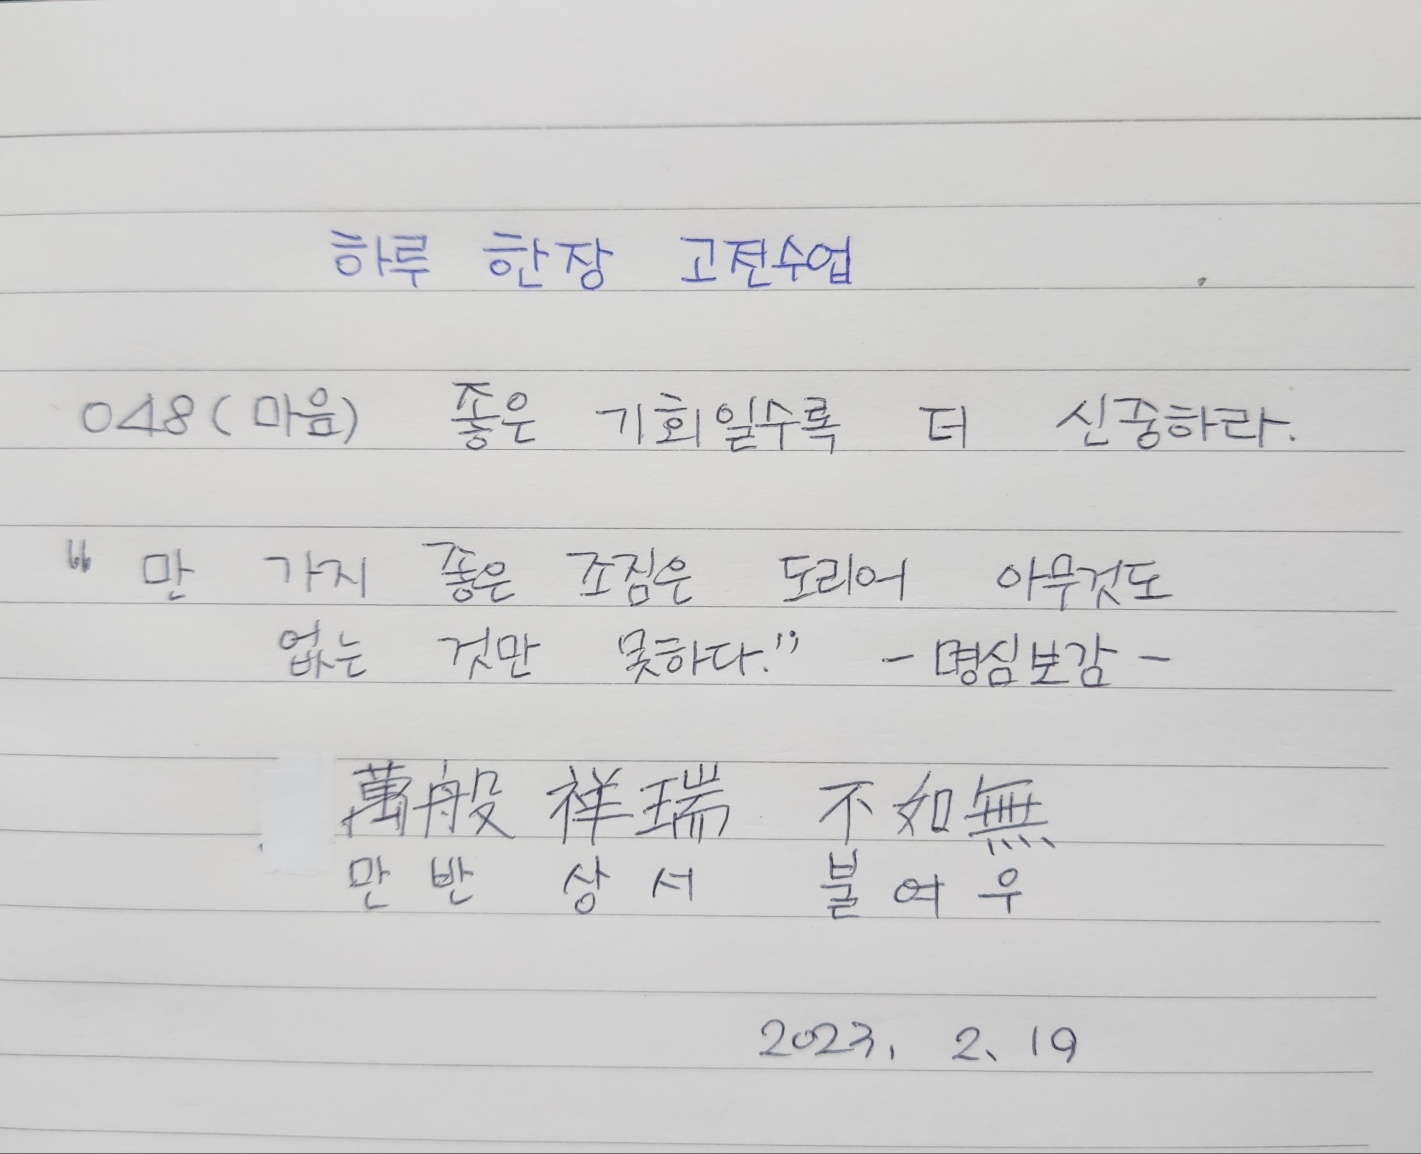 하루 한장 고전수업
048(마음) 좋은 기회일수록 더 신중하라.
“만 가지 좋은 조짐은 도리어 아무것도
없는 것만 못하다.” -명심보감-
萬般 祥瑞 不如無
만반 상서 불여우
2023. 2. 19